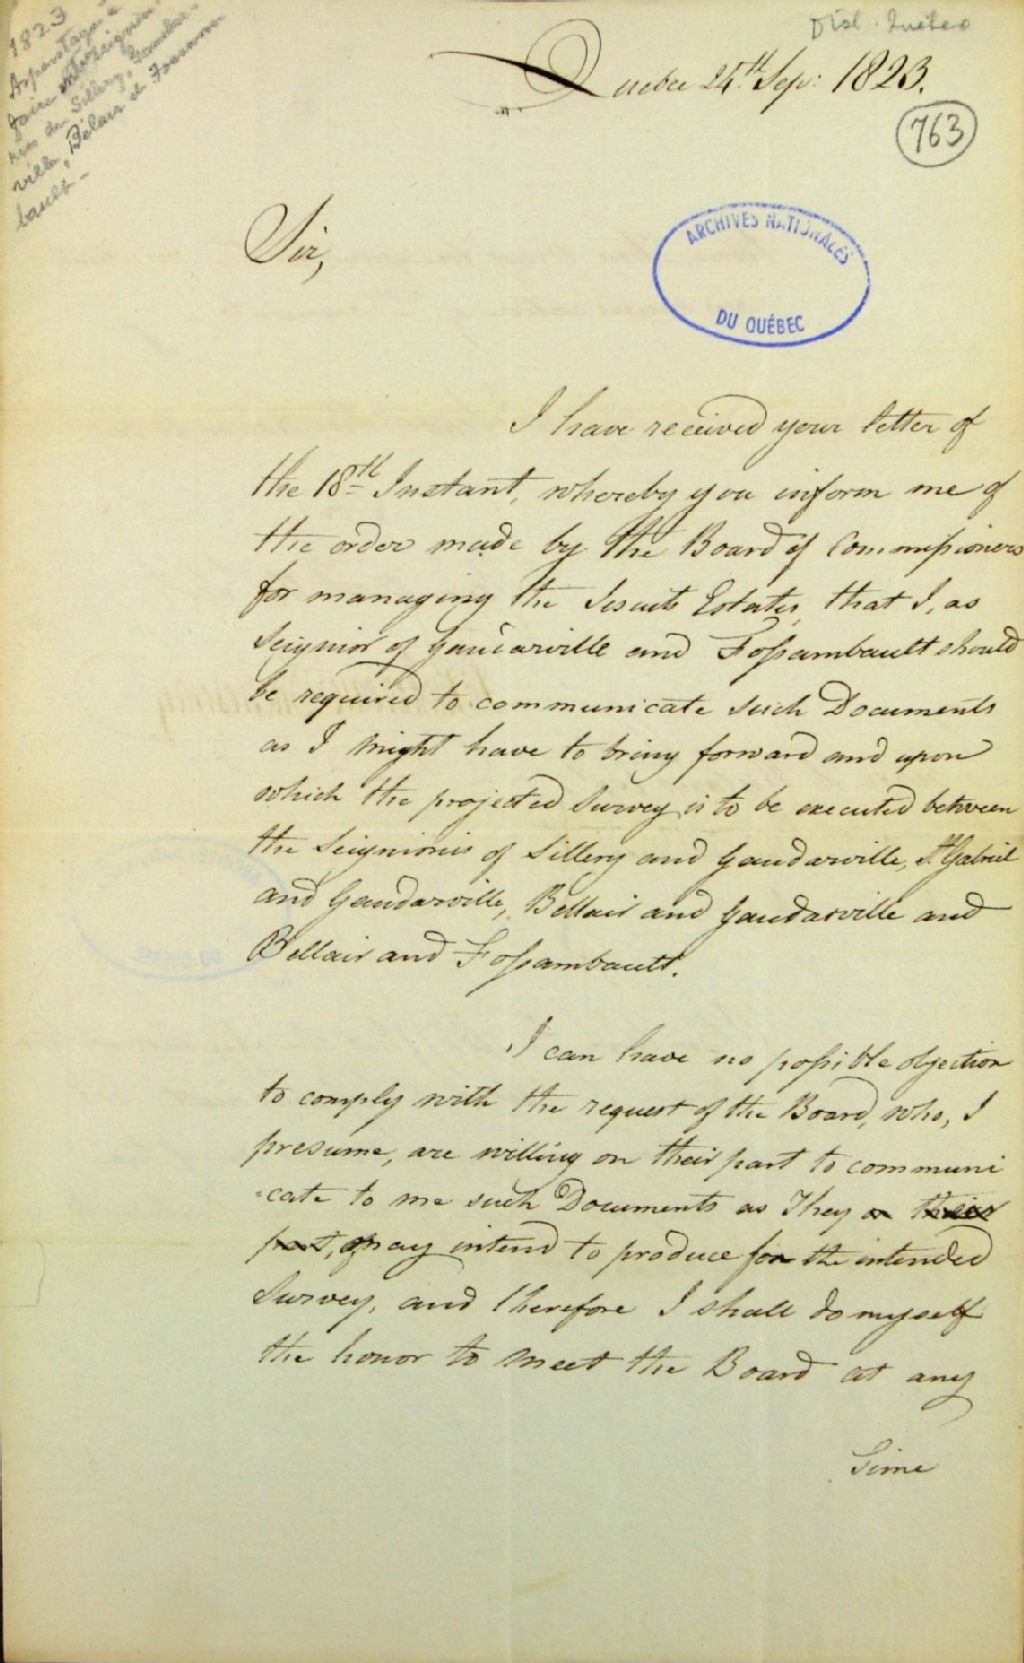 1823
Arpentage à
faire entre seigneu-
ries de Sillery, Gaudar-
ville, Bélair et Fossam-
bault -
Dist. Québec
Quebec 24th Sep: 1823.
763
ARCHIVES NATIONALES
DU QUÉBEC
Sir,
I have received your letter of
the 18th Instant, whereby you inform me of
the order made by the Board of Commissioners
for managing the Jesuits Estates, that I, as
Seignior of Gaudarville and Fossambault should
be required to communicate such Documents
as I might have to bring forward and upon
which the projected Survey is to be executed between
the Seigniories of Sillery and Gaudarville, St Gabriel
and Gaudarville, Bellair and Gaudarville and
Bellair and Fossambault.
I can have no possible objection
to comply with the request of the Board, who, I
presume, are willing on their part to communi
-cate to me such Documents as They on their
part, may intend to produce for the intended
Survey, and therefore I shall do myself
the honor to meet the Board at any
Time